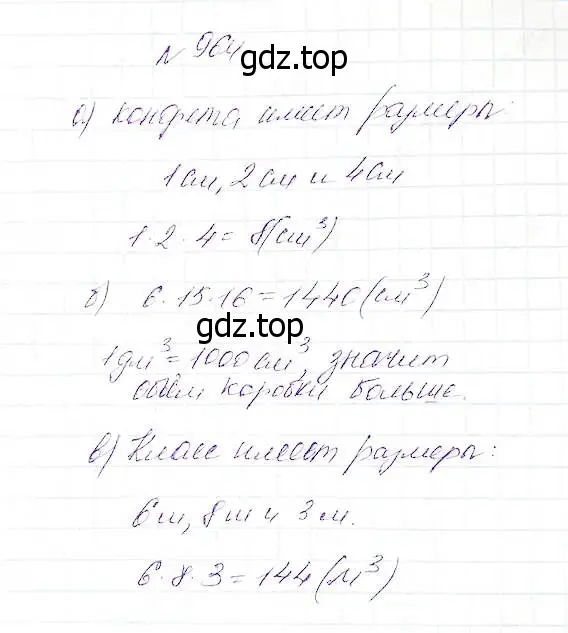 № 964
gdz.top
а) конфета имеет размеры:
1см, 2см и 4см
1·2·4=8(см³)
б) 6·15·16=1440(см³)
gdz.top
1дм³=1000см³, значит
объём коробки больше.
в) Класс имеет размеры:
6м, 8м и 3м.
6·8·3=144(м³)